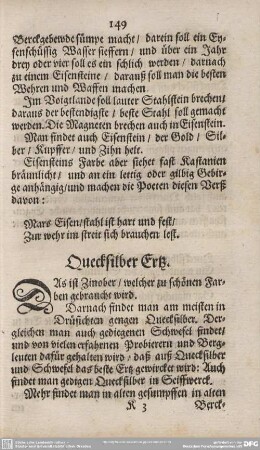 149
Berckgebewde sümpe macht/ darein soll ein Ey-
senschüssig Wasser sieffern/ und über ein Jahr
drey oder vier soll es ein schlich werden/ darnach
zu einem Eisensteine/ darauß soll man die besten
Wehren und Waffen machen.
Im Voigtlande soll lauter Stahlstein brechen/
daraus der bestendigste/ beste Stahl soll gemacht
werden. Die Magneten brechen auch in Eisenstein.
Man findet auch Eisenstein/ der Gold/ Sil-
ber/ Kupffer/ und Zihn helt.
Eisensteins Farbe aber siehet fast Kastanien
bräumlicht/ und an ein lettig oder gilbig Gebir-
ge anhängig/und machen die Poeten diesen Verß
davon:
Mars Eisen/stahl ist hart und fest/
Zur wehr im streit sich brauchen lest.
Quecksilber Ertz.
DAs ist Zinober/ welcher zu schönen Far-
ben gebraucht wird.
Darnach findet man am meisten in
Drüsichten gengen Quecksilber. Der-
gleichen man auch gediegenen Schwefel findet/
und von vielen erfahrnen Probierern und Berg-
leuten dafür gehalten wird/ daß auß Quecksilber
und Schwefel das beste Ertz gewircket wird: Auch
findet man gedigen Quecksilber in Seiffwerck.
Mehr findet man in alten gesümpfften in alten
K 3 Berck-